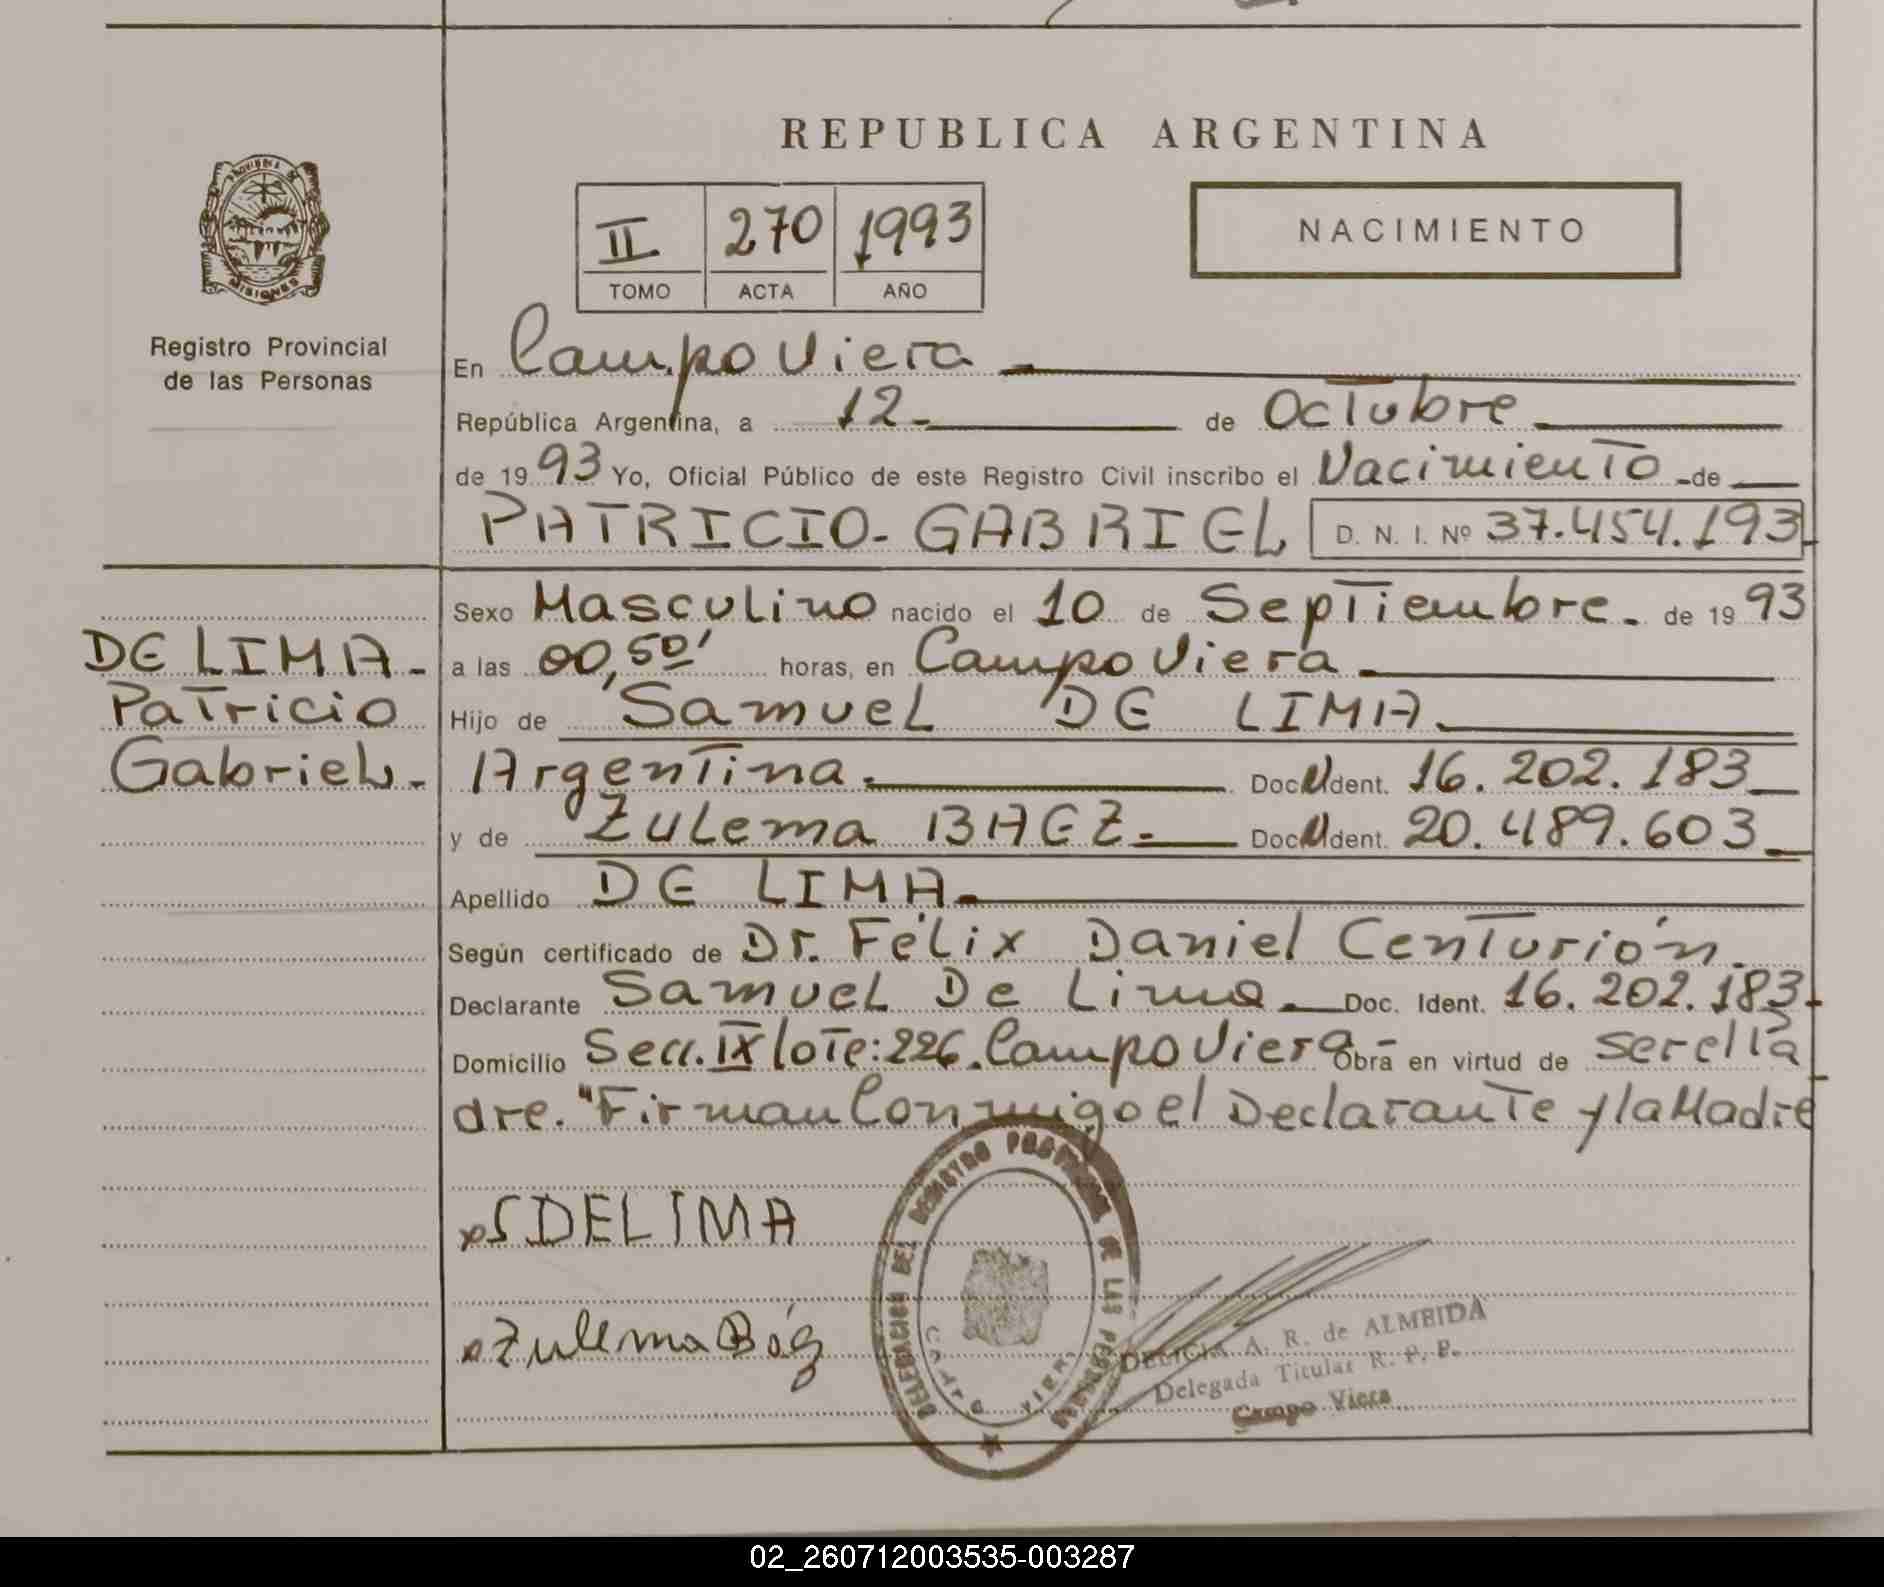 REPUBLICA ARGENTINA
PROVINCIA DE
MISIONES
II 270 1993
TOMO ACTA AÑO
NACIMIENTO
Registro Provincial
de las Personas
En Campo Viera
República Argentina, a 12 de Octubre
de 1993 Yo, Oficial Público de este Registro Civil inscribo el Nacimiento de
PATRICIO-GABRIEL D. N. I. Nº 37.454.193
DE LIMA
Patricio
Gabriel
Sexo Masculino nacido el 10 de Septiembre de 1993
a las 00,50' horas, en Campo Viera
Hijo de Samuel DE LIMA
Argentina Doc. Ident. 16.202.183
y de Zulema BAEZ Doc. Ident. 20.489.603
Apellido DE LIMA
Según certificado de Dr. Félix Daniel Centurión
Declarante Samuel De Lima Doc. Ident. 16.202.183
Domicilio Secc. IX lote: 226. Campo Viera Obra en virtud de ser el Pa
dre. "Firman Conmigo el Declarante y la Madre
S DE LIMA
Zulema Báez
DELEGACION DEL REGISTRO PROVINCIAL DE LAS PERSONAS
CAMPO VIERA
DELICIA A. R. de ALMEIDA
Delegada Titular R. P. P.
Campo Viera
02_260712003535-003287